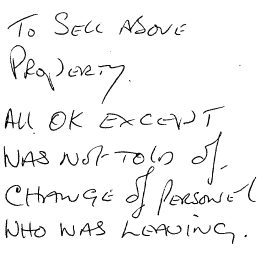 To SELL ABOVE
PROPERTY.
All OK EXCEPT
WAS NOT TOLD of
CHANGE of PERSONEL
WHO WAS LEAVING.